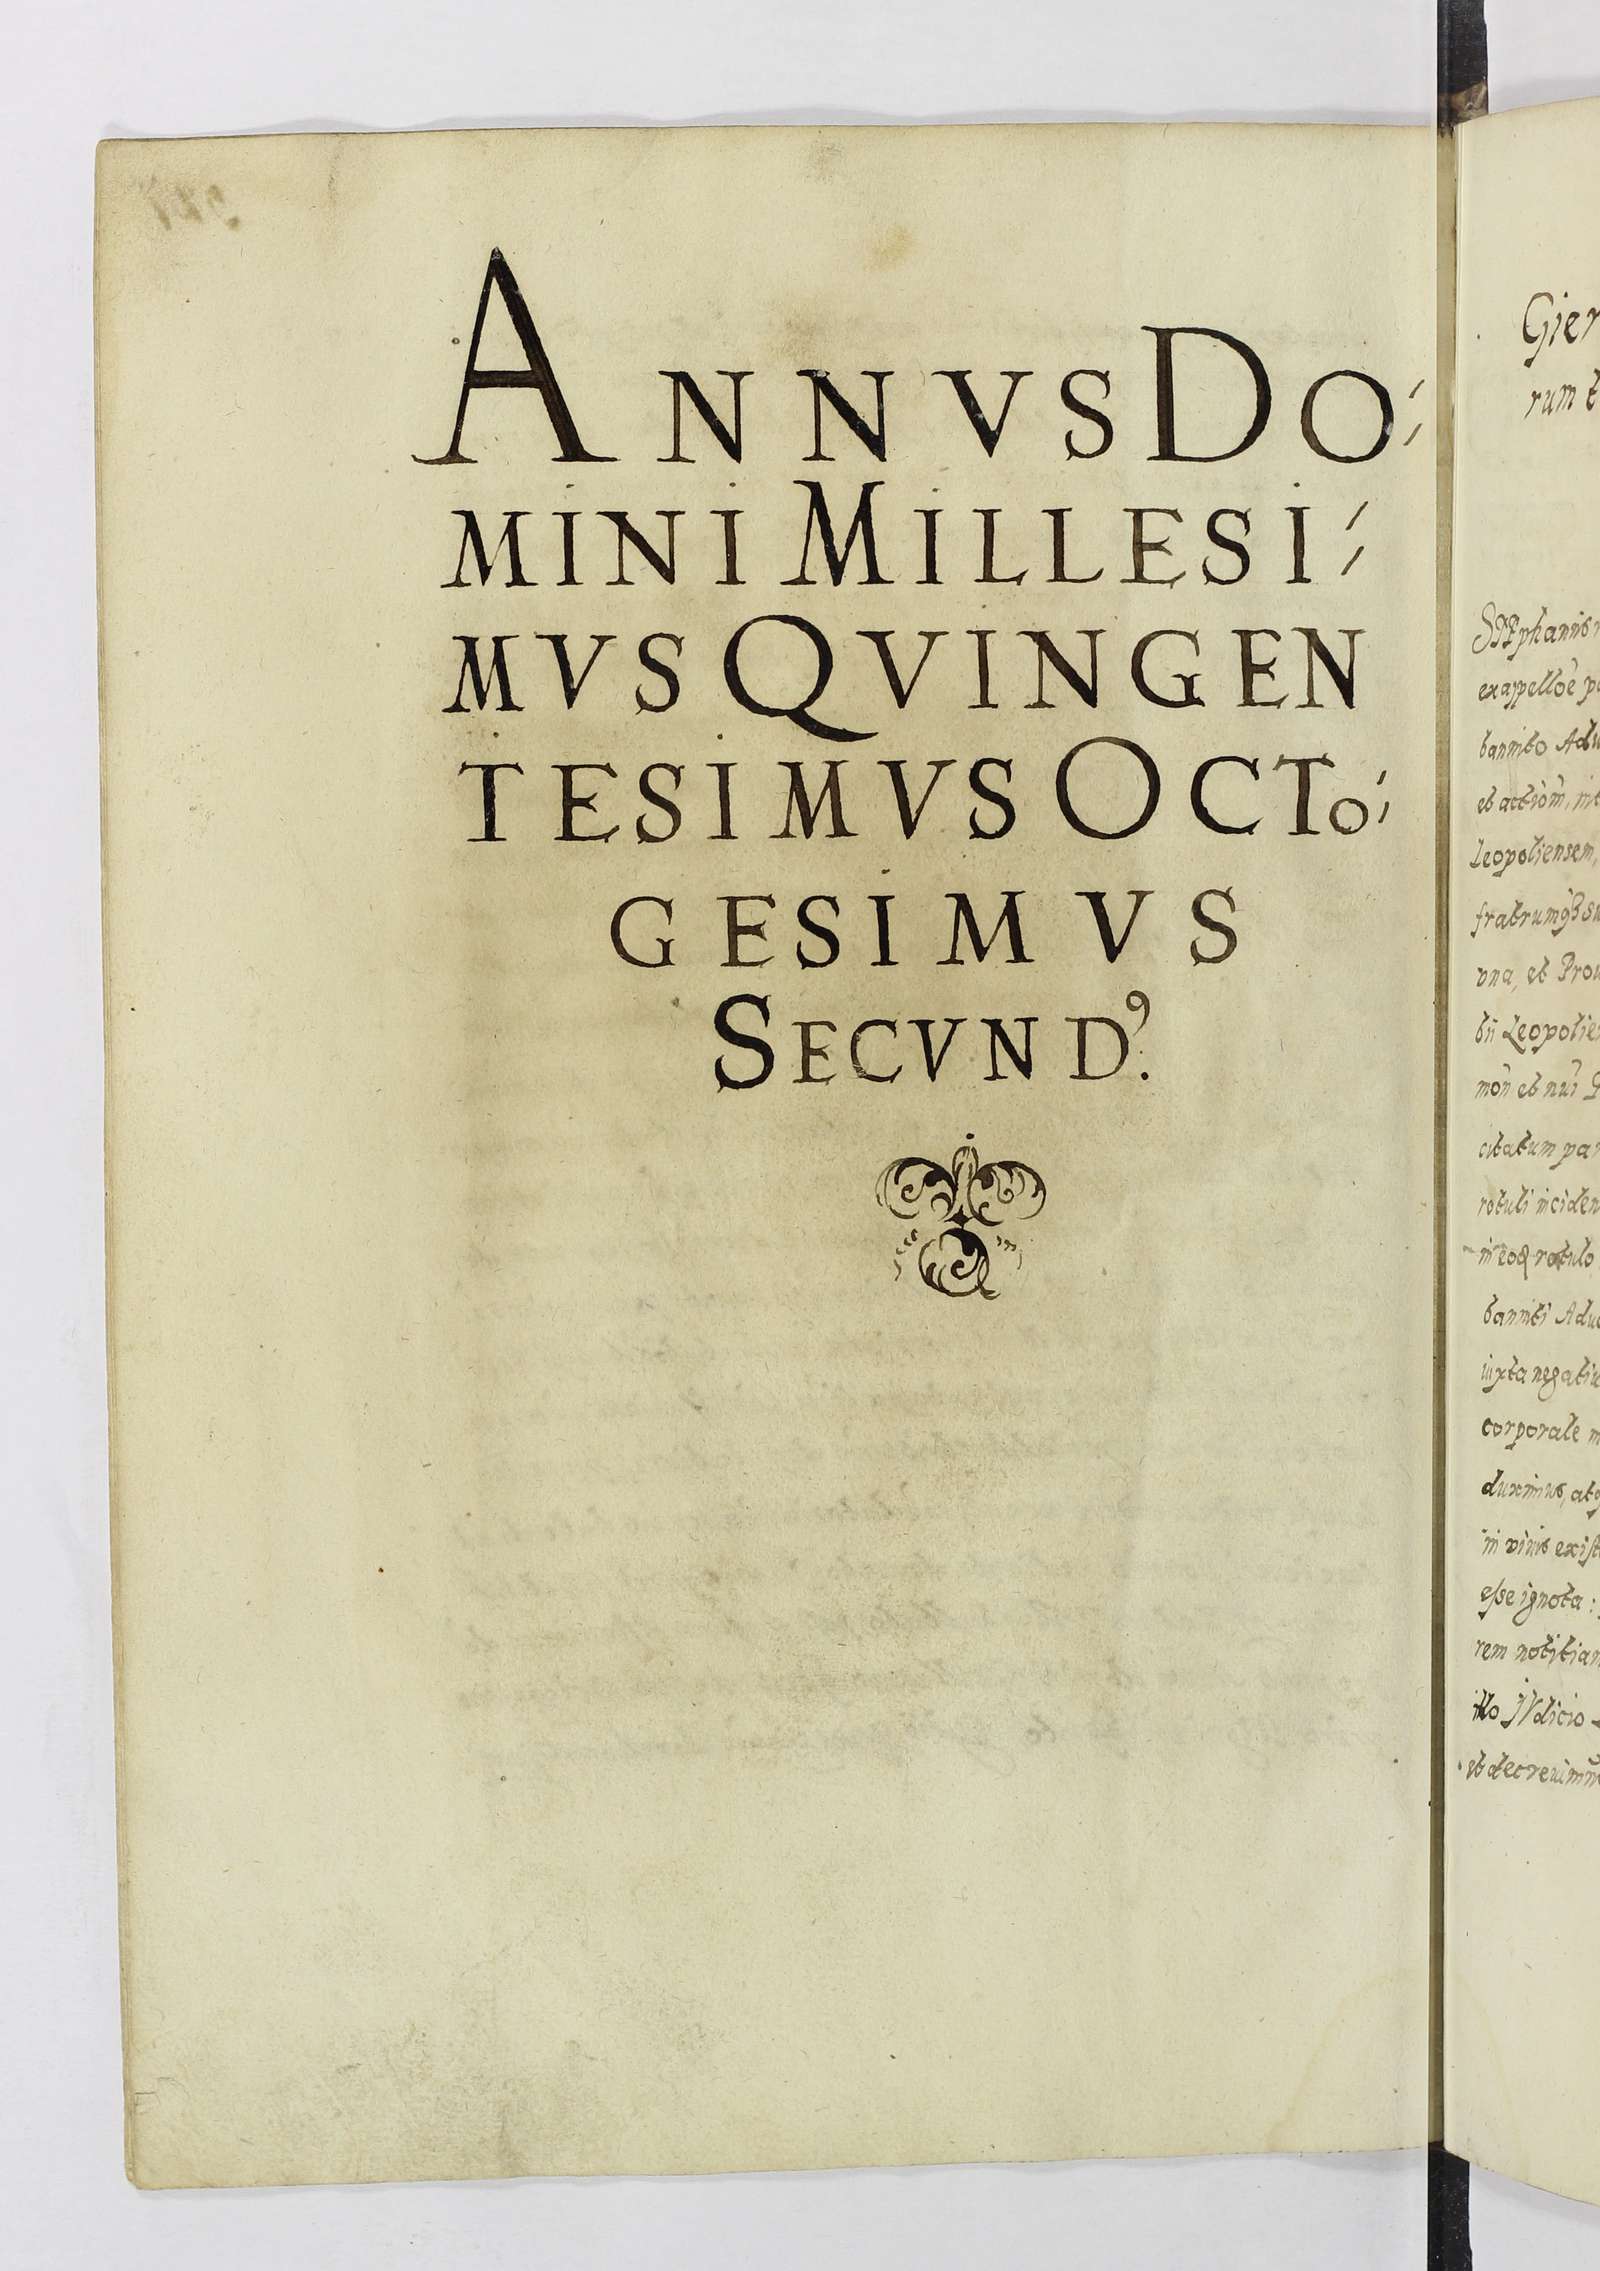 ANNVS DO⸗
MINI MILLESI⸗
MVS QVINGEN
TESIMVS OCTO⸗
GESIMVS
SECVNDꝰ.
Gier
rum t
Stephanus
ex appelloe p
bannito Adu
et actiom, int
Leopoliensem,
fratrumqꝫ su
vna, et Prou
tii Leopolie
mon et nui P
citatum par
rotuli inciden
in eoq rotulo
banniti Adu
iuxta negatiu
corporale m
duximus, atq
in vivis exist
esse ignota:
rem notitiam
illo iVdicio
et decreuim